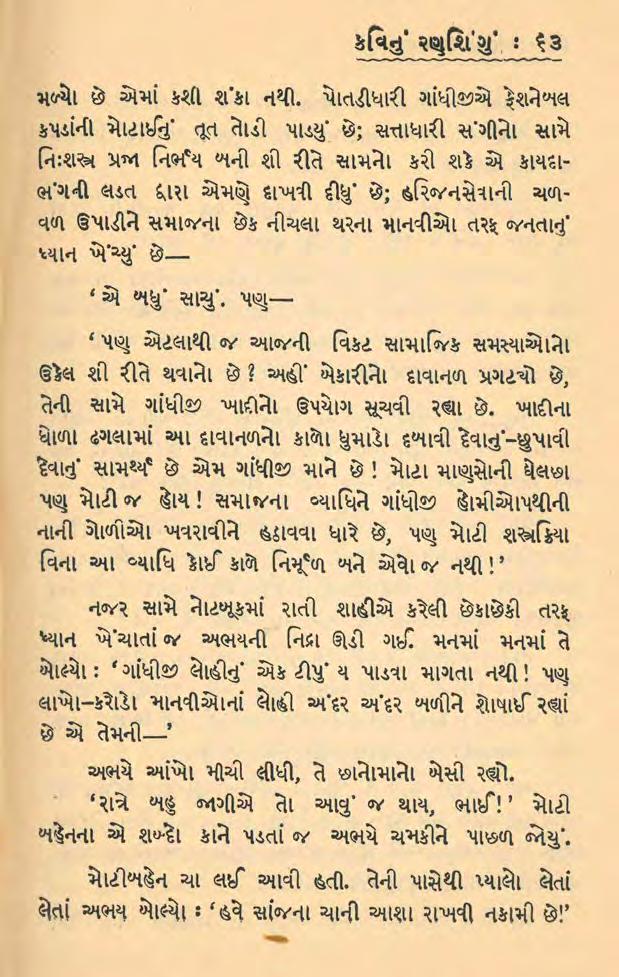 કવિનું રણશિંગું : ૬૩
મળ્યો છે એમાં કશી શંકા નથી. પોતડીધારી ગાંધીજીએ ફેશનેબલ
કપડાંની મોટાઈનું તૂત તોડી પાડયું છે; સત્તાધારી સંગીનો સામે
નિઃશસ્ત્ર પ્રજા નિર્ભય બની શી રીતે સામનો કરી શકે એ કાયદા-
ભંગની લડત દ્વારા એમણે દાખવી દીધું છે; હરિજનસેવાની ચળ-
વળ ઉપાડીને સમાજના છેક નીચલા થરના માનવીઓ તરફ જનતાનું
ધ્યાન ખેંચ્યું છે—
‘ એ બધું સાચું. પણ—
‘ પણ એટલાથી જ આજની વિકટ સામાજિક સમસ્યાઓનો
ઉકેલ શી રીતે થવાનો છે ? અહીં બેકારીનો દાવાનળ પ્રગટયો છે,
તેની સામે ગાંધીજી ખાદીનો ઉપયોગ સૂચવી રહ્યા છે. ખાદીના
ધોળા ઢગલામાં આ દાવાનળનો કાળો ધુમાડો દબાવી દેવાનું–છુપાવી
દેવાનું સામર્થ્ય છે એમ ગાંધીજી માને છે ! મોટા માણસોની ઘેલછા
પણ મોટી જ હોય ! સમાજના વ્યાધિને ગાંધીજી હોમીઓપથીની
નાની ગોળીઓ ખવરાવીને હઠાવવા ધારે છે, પણ મોટી શસ્ત્રક્રિયા
વિના આ વ્યાધિ કોઈ કાળે નિર્મૂળ બને એવો જ નથી !’
નજર સામે નોટબૂકમાં રાતી શાહીએ કરેલી છેકાછેકી તરફ
ધ્યાન ખેંચાતાં જ અભયની નિદ્રા ઊડી ગઈ. મનમાં મનમાં તે
બોલ્યો : ‘ગાંધીજી લોહીનું એક ટીપું ય પાડવા માગતા નથી ! પણ
લાખો–કરોડો માનવીઓનાં લોહી અંદર અંદર બળીને શોષાઈ રહ્યાં
છે એ તેમની—’
અભયે આંખો મીચી લીધી, તે છાનોમાનો બેસી રહ્યો.
‘રાત્રે બહુ જાગીએ તો આવું જ થાય, ભાઈ !’ મોટી
બહેનના એ શબ્દો કાને પડતાં જ અભયે ચમકીને પાછળ જોયું.
મોટીબહેન ચા લઈ આવી હતી. તેની પાસેથી પ્યાલો લેતાં
લેતાં અભય બોલ્યો : ‘હવે સાંજના ચાની આશા રાખવી નકામી છે!’